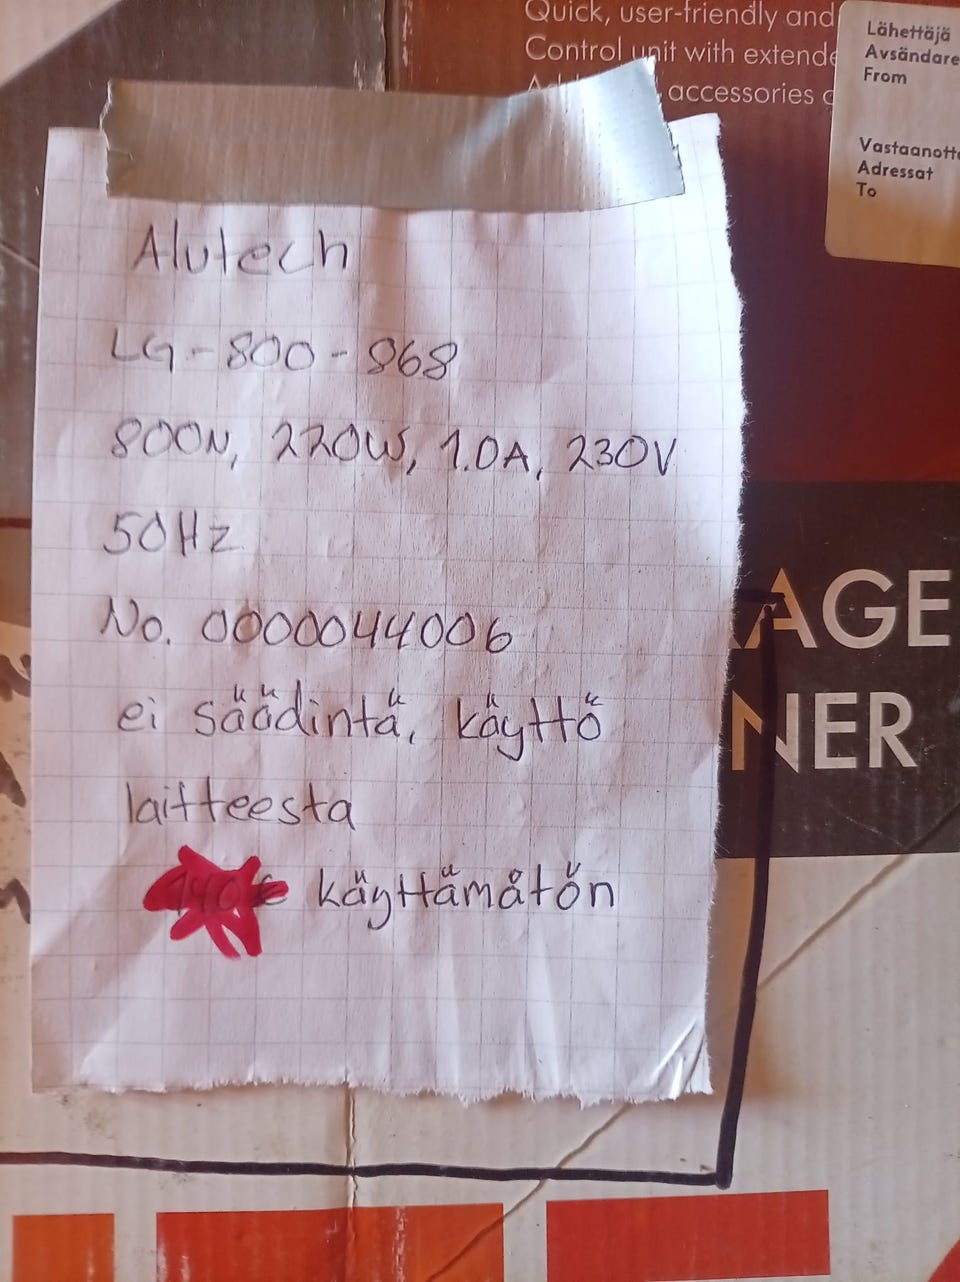 Quick, user-friendly and
Control unit with extende
accessories
Lähettäjä
Avsändare
From
Vastaanotta
Adressat
To
Alutech
LG-800-868
800N, 220W, 1.0A, 230V
50Hz
No. 0000044006
ei säädintä, käyttö
laitteesta
140€ käyttämåtön
AGE
NER